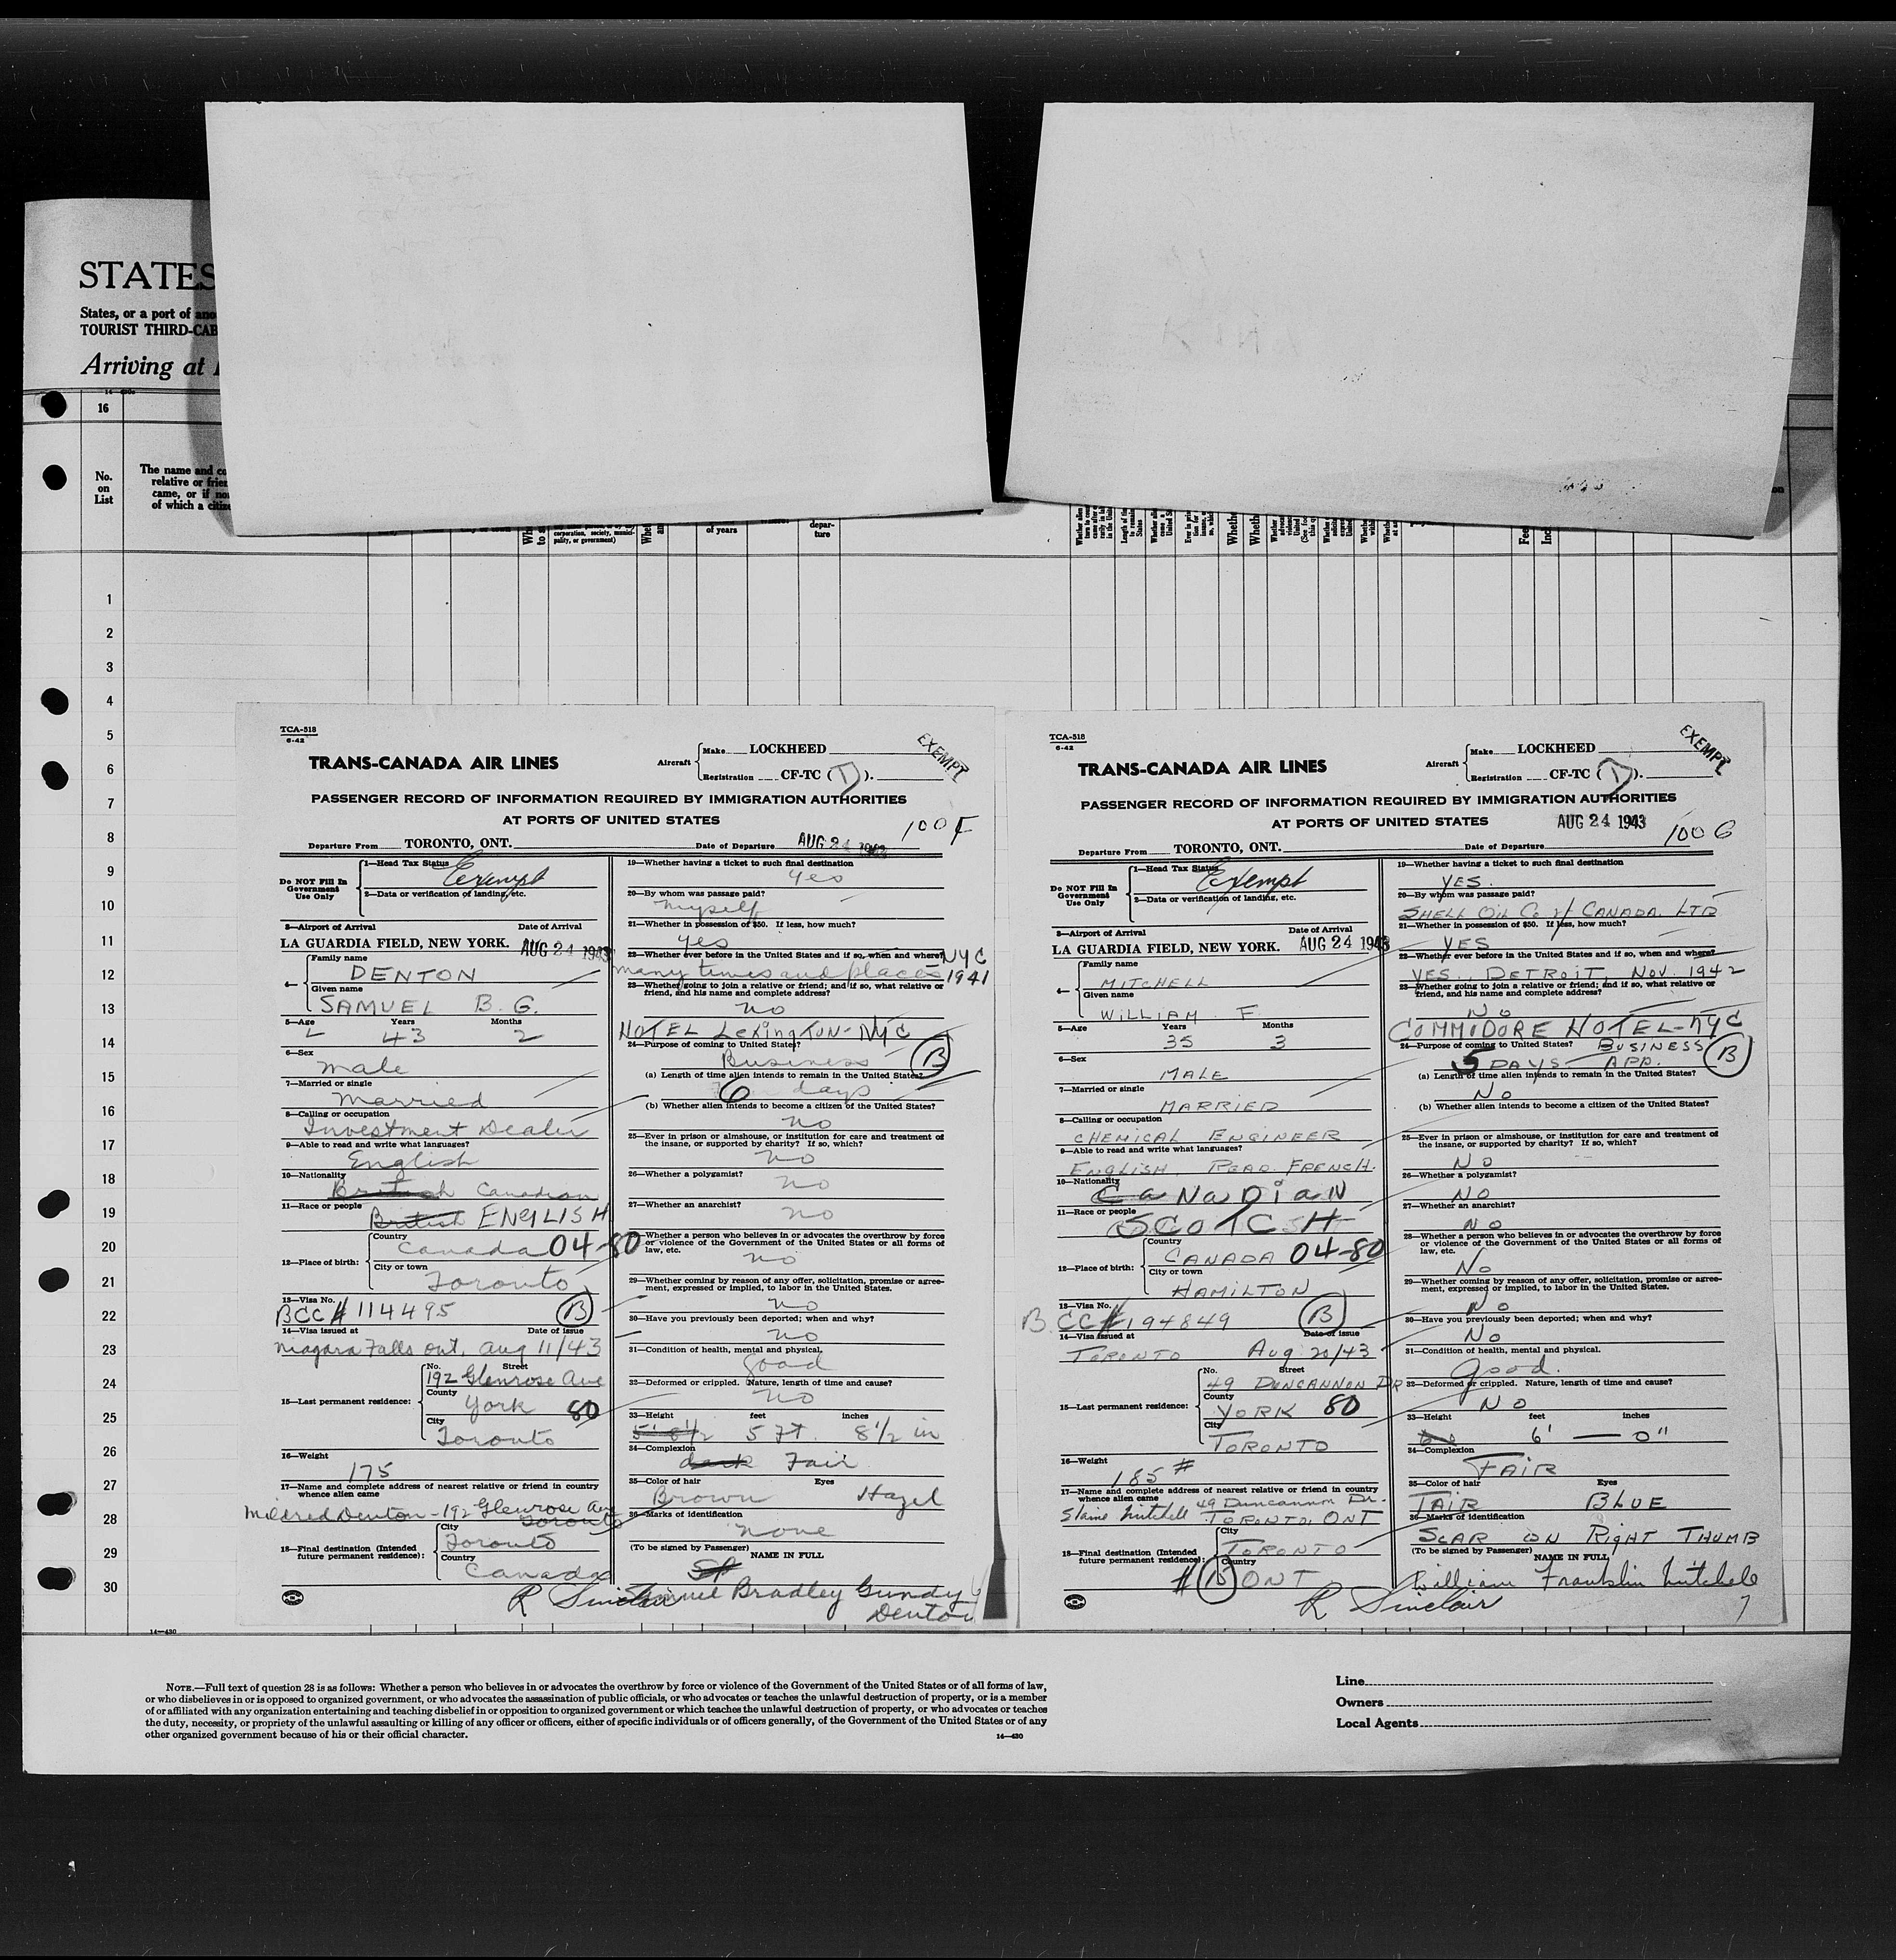 STATES
States, or a port of
TOURIST THIRD-CAB
Arriving at
16
No.
on
List
The name and
relative or
came, or if
of which a
corporation, society, munici-
pality, or government)
of years
depar-
ture
1
2
3
4
5
6
7
8
9
10
11
12
13
14
15
16
17
18
19
20
21
22
23
24
25
26
27
28
29
30
TCA-518
6-42
TRANS-CANADA AIR LINES
Aircraft
Make LOCKHEED
Registration CF-TC ( ).
EXEMPT
PASSENGER RECORD OF INFORMATION REQUIRED BY IMMIGRATION AUTHORITIES
AT PORTS OF UNITED STATES
100 F
Departure From TORONTO, ONT. Date of Departure AUG 24 1943
Do NOT Fill In
Government
Use Only
1—Head Tax Status Exempt
2—Data or verification of landing, etc.
3—Airport of Arrival Date of Arrival
LA GUARDIA FIELD, NEW YORK. AUG 24 1943
4—
Family name
DENTON
Given name
SAMUEL B. G.
5—Age Years Months
43 2
6—Sex
male
7—Married or single
Married
8—Calling or occupation
Investment Dealer
9—Able to read and write what languages?
English
10—Nationality
British Canadian
11—Race or people
British ENGLISH
12—Place of birth:
Country
Canada 04-80
City or town
Toronto
13—Visa No.
BCC # 114495 B
14—Visa issued at Date of issue
Niagara Falls Ont. Aug 11/43
15—Last permanent residence:
No. Street
192 Glenrose Ave
County
York 80
City
Toronto
16—Weight
175
17—Name and complete address of nearest relative or friend in country
whence alien came
Mildred Denton - 192 Glenrose Ave
Toronto
18—Final destination (Intended
future permanent residence):
City
Toronto
Country
Canada
19—Whether having a ticket to such final destination
Yes
20—By whom was passage paid?
Myself
21—Whether in possession of $50. If less, how much?
Yes
22—Whether ever before in the United States and if so, when and where? NYC
many times and places 1941
23—Whether going to join a relative or friend; and if so, what relative or
friend, and his name and complete address?
no
HOTEL LexingTON - NYC
24—Purpose of coming to United States?
Business B
(a) Length of time alien intends to remain in the United States?
6 days
(b) Whether alien intends to become a citizen of the United States?
no
25—Ever in prison or almshouse, or institution for care and treatment of
the insane, or supported by charity? If so, which?
no
26—Whether a polygamist?
no
27—Whether an anarchist?
no
Whether a person who believes in or advocates the overthrow by force
or violence of the Government of the United States or all forms of
law, etc.
no
29—Whether coming by reason of any offer, solicitation, promise or agree-
ment, expressed or implied, to labor in the United States.
no
30—Have you previously been deported; when and why?
no
31—Condition of health, mental and physical.
Good
32—Deformed or crippled. Nature, length of time and cause?
no
33—Height feet inches
5' 8½ 5 Ft. 8½ in
34—Complexion
dark Fair
35—Color of hair Eyes
Brown Hazel
36—Marks of identification
none
(To be signed by Passenger) NAME IN FULL
R Sinclair Samuel Bradley Gundy
Denton
TCA-518
6-42
TRANS-CANADA AIR LINES
Aircraft
Make LOCKHEED
Registration CF-TC ( ).
EXEMPT
PASSENGER RECORD OF INFORMATION REQUIRED BY IMMIGRATION AUTHORITIES
AT PORTS OF UNITED STATES
AUG 24 1943 100 G
Departure From TORONTO, ONT. Date of Departure
Do NOT Fill In
Government
Use Only
1—Head Tax Status Exempt
2—Data or verification of landing, etc.
3—Airport of Arrival Date of Arrival
LA GUARDIA FIELD, NEW YORK. AUG 24 1943
4—
Family name
MITCHELL
Given name
WILLIAM F.
5—Age Years Months
35 3
6—Sex
MALE
7—Married or single
MARRIED
8—Calling or occupation
CHEMICAL ENGINEER
9—Able to read and write what languages?
ENGLISH. READ FRENCH.
10—Nationality
CaNaDiaN
11—Race or people
SCOTCH
12—Place of birth:
Country
CANADA 04-80
City or town
HAMILTON
13—Visa No.
B.CC # 194849 B
14—Visa issued at Date of issue
TORONTO Aug 20/43
15—Last permanent residence:
No. Street
49 DUNCANNON DR
County
YORK 80
City
TORONTO
16—Weight
185 #
17—Name and complete address of nearest relative or friend in country
whence alien came
49 Duncannon Dr.
Mitchell TORONTO, ONT
18—Final destination (Intended
future permanent residence):
City
TORONTO
Country
# B ONT
19—Whether having a ticket to such final destination
YES.
20—By whom was passage paid?
SHELL OIL Co of CANADA. LTD
21—Whether in possession of $50. If less, how much?
YES
22—Whether ever before in the United States and if so, when and where?
YES. DETROIT, NOV. 1942
23—Whether going to join a relative or friend; and if so, what relative or
friend, and his name and complete address?
NO
COMMODORE HOTEL - NYC
24—Purpose of coming to United States? BUSINESS B
5 DAYS APP.
(a) Length of time alien intends to remain in the United States?
No
(b) Whether alien intends to become a citizen of the United States?
25—Ever in prison or almshouse, or institution for care and treatment of
the insane, or supported by charity? If so, which?
NO
26—Whether a polygamist?
NO
27—Whether an anarchist?
NO
28—Whether a person who believes in or advocates the overthrow by force
or violence of the Government of the United States or all forms of
law, etc.
No
29—Whether coming by reason of any offer, solicitation, promise or agree-
ment, expressed or implied, to labor in the United States.
No
30—Have you previously been deported; when and why?
No
31—Condition of health, mental and physical.
Good.
32—Deformed or crippled. Nature, length of time and cause?
NO
33—Height feet inches
6' — 0"
34—Complexion
FAIR
35—Color of hair Eyes
FAIR BLUE
36—Marks of identification
SCAR ON RIGHT THUMB
(To be signed by Passenger) NAME IN FULL
William Franklin Mitchell
R Sinclair 7
14—430
NOTE.—Full text of question 28 is as follows: Whether a person who believes in or advocates the overthrow by force or violence of the Government of the United States or of all forms of law,
or who disbelieves in or is opposed to organized government, or who advocates the assassination of public officials, or who advocates or teaches the unlawful destruction of property, or is a member
of or affiliated with any organization entertaining and teaching disbelief in or opposition to organized government or which teaches the unlawful destruction of property, or who advocates or teaches
the duty, necessity, or propriety of the unlawful assaulting or killing of any officer or officers, either of specific individuals or of officers generally, of the Government of the United States or of any
other organized government because of his or their official character.
14—430
Line
Owners
Local Agents